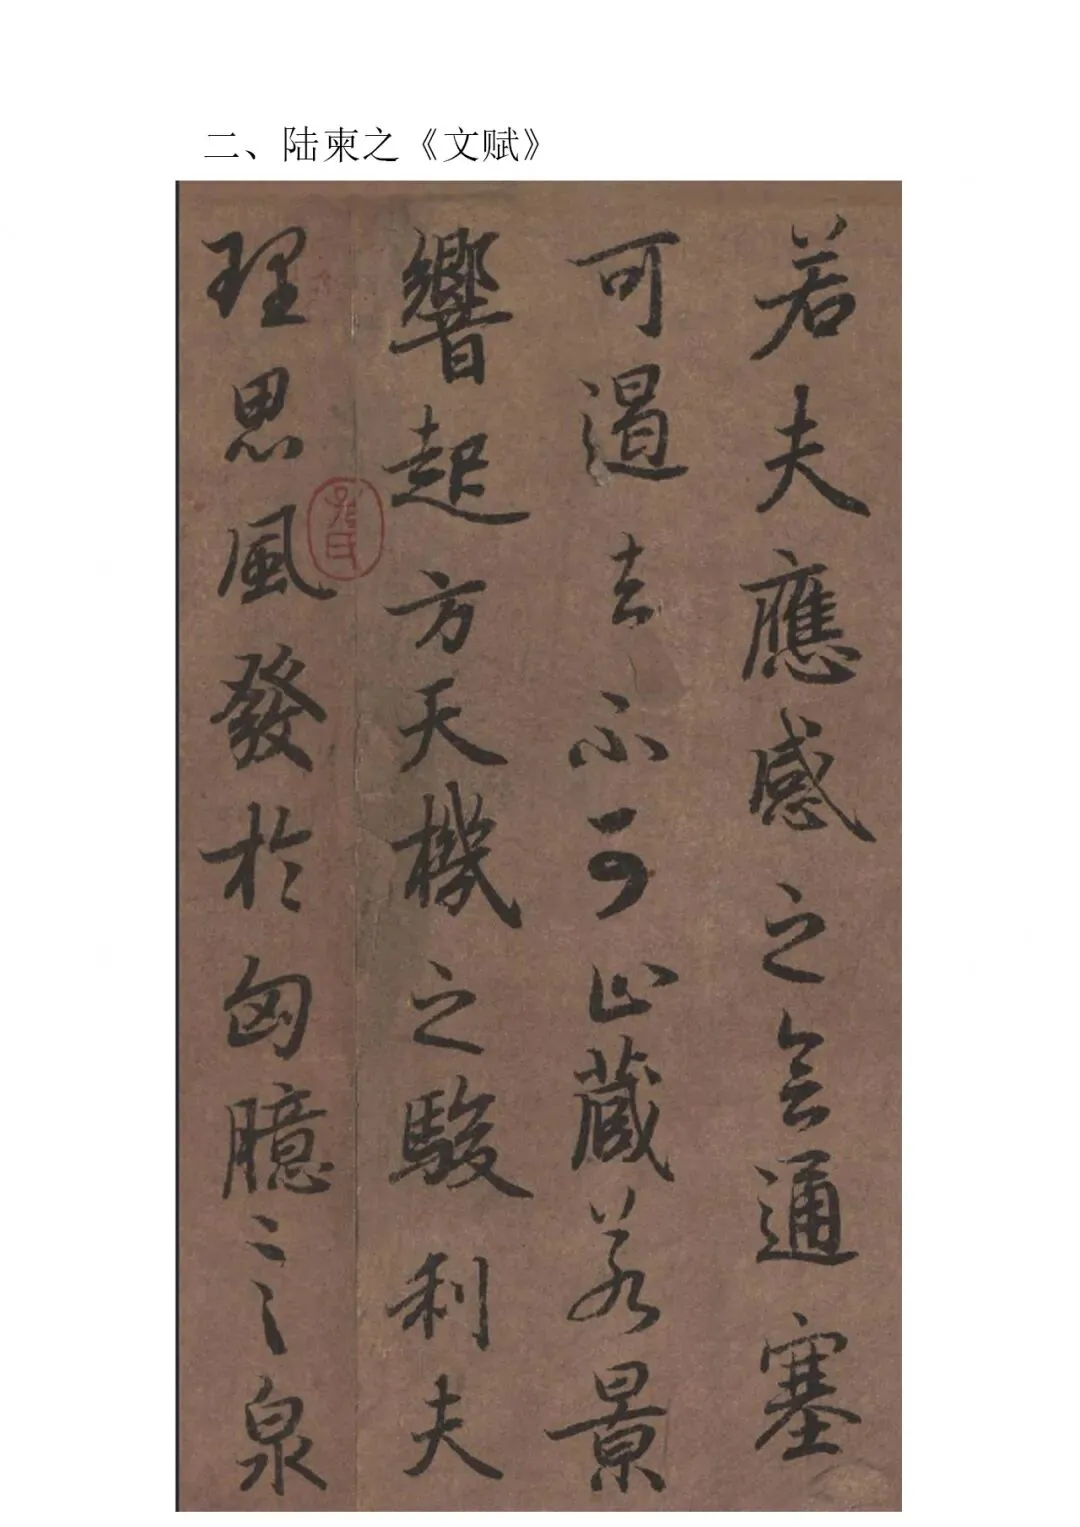 二、陆柬之《文赋》
若夫應感之会通塞
可遏去不可止藏若景
響起方天機之駿利夫
理思風發於匈臆言泉